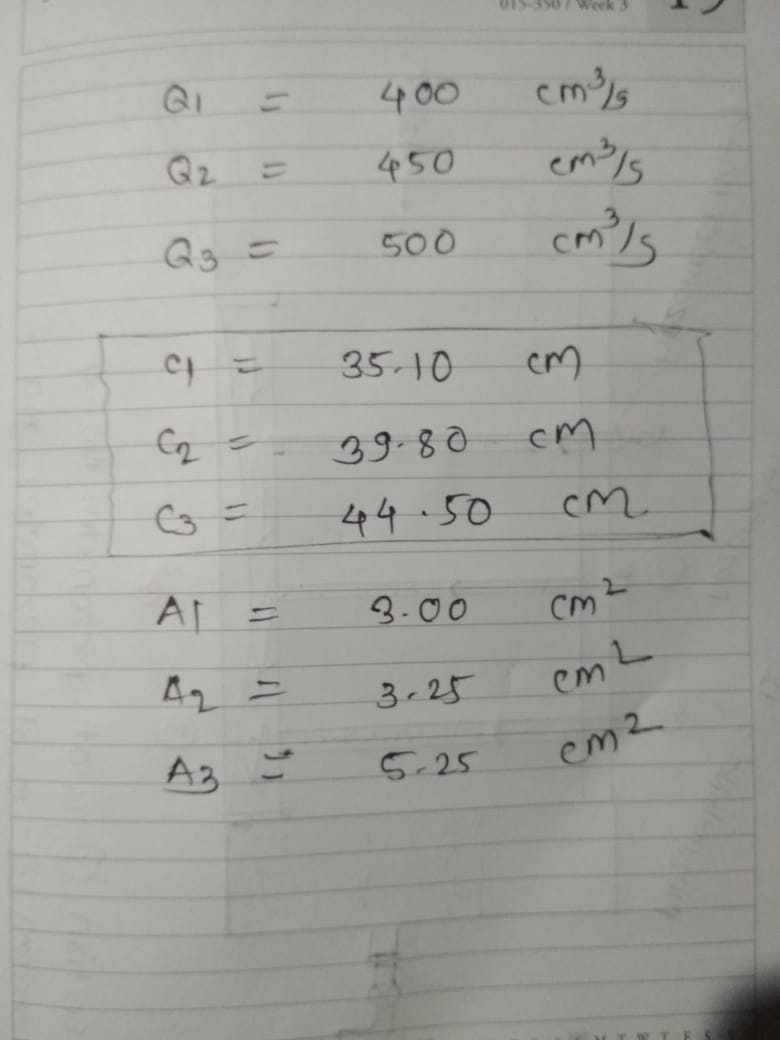 015-350 / Week 3
Q1 = 400 cm³/s
Q2 = 450 cm³/s
Q3 = 500 cm³/s
C1 = 35.10 cm
C2 = 39.80 cm
C3 = 44.50 cm
A1 = 3.00 cm²
A2 = 3.25 cm²
A3 = 5.25 cm²
M T W T F S